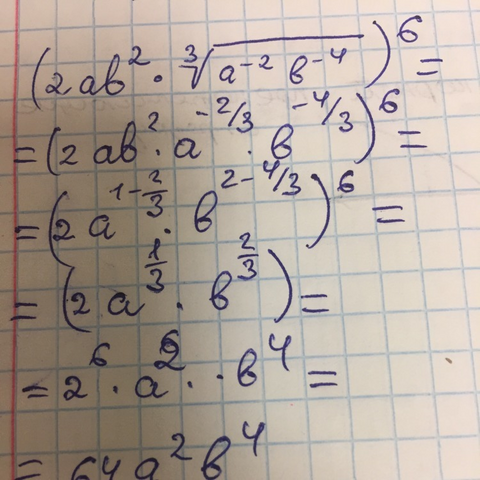 (2ab² · ∛(a⁻² b⁻⁴))⁶ =
= (2ab² · a^(-2/3) · b^(-4/3))⁶ =
= (2a^(1-2/3) · b^(2-4/3))⁶ =
= (2a^(1/3) · b^(2/3)) =
= 2⁶ · a² · · b⁴ =
= 64a²b⁴